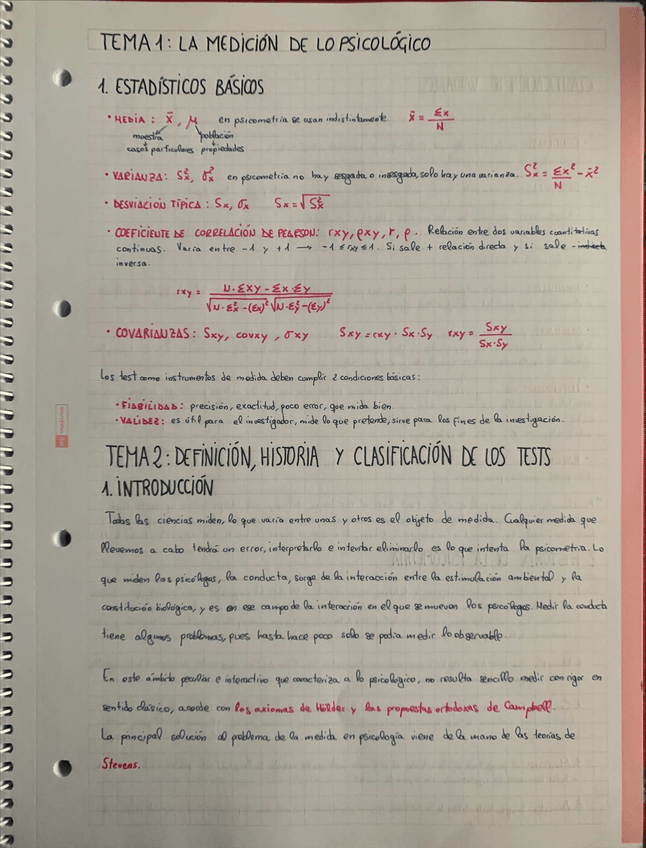 TEMA 1: LA MEDICIÓN DE LO PSICOLÓGICO
1. ESTADÍSTICOS BÁSICOS
• MEDIA: x̄, μ en psicometría se usan indistintamente. x̄ = Σx / N
muestra población
casos particulares propiedades
• VARIANZA: S²x, σ²x en psicometría no hay sesgada o insesgada, solo hay una varianza. S²x = Σx² / N - x̄²
• DESVIACIÓN TÍPICA: Sx, σx Sx = √S²x
• COEFICIENTE DE CORRELACIÓN DE PEARSON: rxy, ρxy, r, ρ. Relación entre dos variables cuantitativas
continuas. Varía entre -1 y +1 → -1 ≤ rxy ≤ 1. Si sale + relación directa y si sale -
inversa.
rxy = N·ΣXY - ΣX·ΣY / √N·Σx² - (Σx)² √N·Σy² - (Σy)²
• COVARIANZAS: Sxy, covxy, σxy Sxy = rxy · Sx · Sy rxy = Sxy / Sx·Sy
Los test como instrumentos de medida deben cumplir 2 condiciones básicas:
• FIABILIDAD: precisión, exactitud, poco error, que mida bien.
• VALIDEZ: es útil para el investigador, mide lo que pretende, sirve para los fines de la investigación.
TEMA 2: DEFINICIÓN, HISTORIA Y CLASIFICACIÓN DE LOS TESTS
1. INTRODUCCIÓN
Todas las ciencias miden, lo que varía entre unas y otros es el objeto de medida. Cualquier medida que
llevemos a cabo tendrá un error, interpretarlo e intentar eliminarlo es lo que intenta la psicometría. Lo
que miden los psicólogos, la conducta, surge de la interacción entre la estimulación ambiental y la
constitución biológica, y es en ese campo de la interacción en el que se mueven los psicólogos. Medir la conducta
tiene algunos problemas, pues hasta hace poco solo se podía medir lo observable.
En este ámbito peculiar e interactivo que caracteriza a lo psicológico, no resulta sencillo medir con rigor en
sentido clásico, acorde con los axiomas de Hölder y las propuestas ortodoxas de Campbell.
La principal solución al problema de la medida en psicología viene de la mano de las teorías de
Stevens.